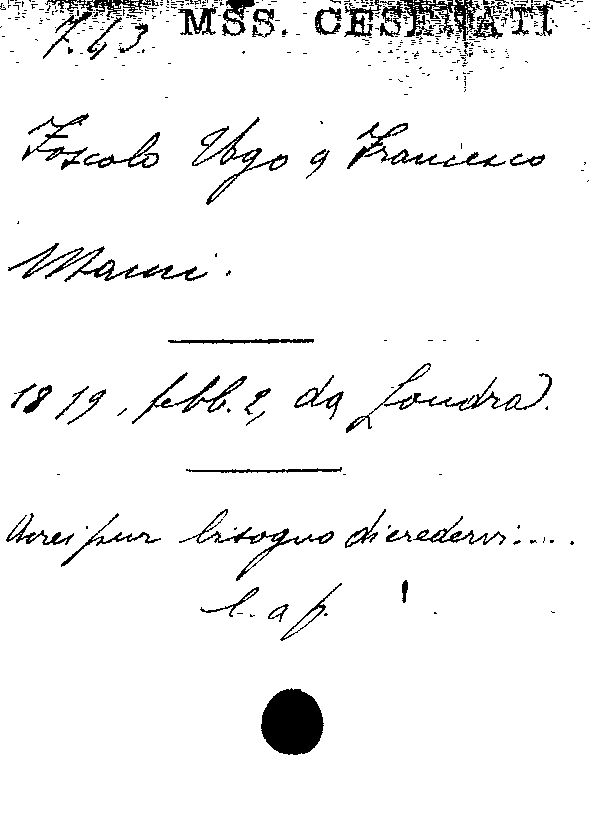 7.43. MSS. CESENATI
Foscolo Ugo a Francesco
Manni.
1819, febb. 2, da Londra.
Avrei pur bisogno di credervi:....
l. a p.